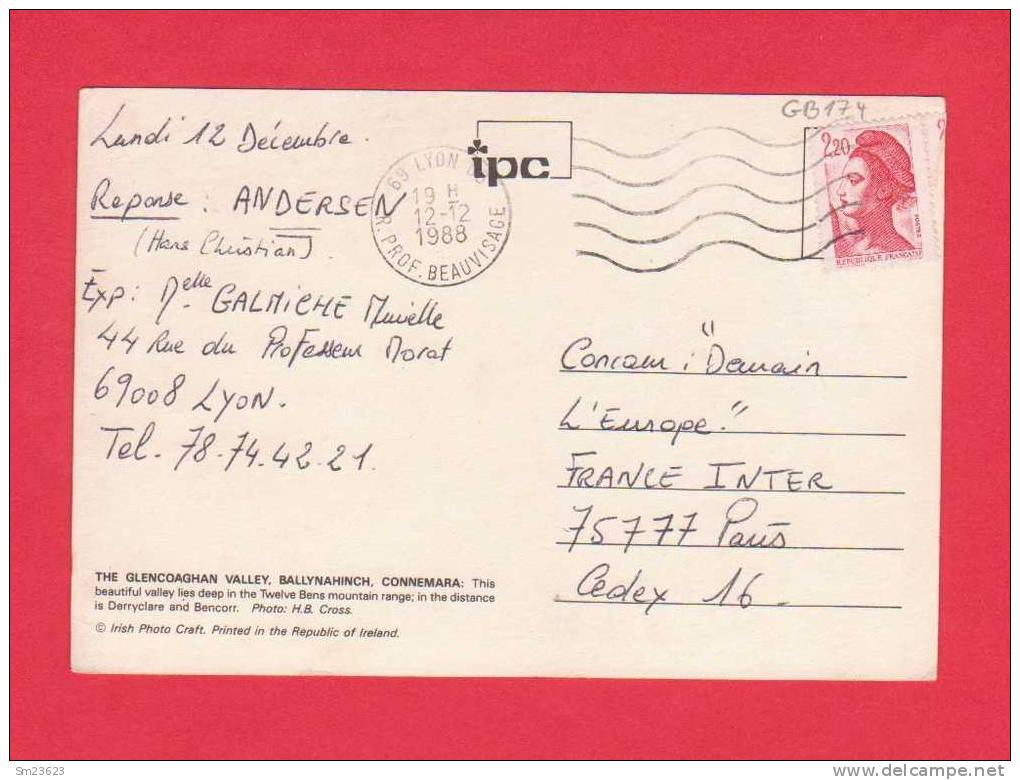 GB174
Lundi 12 Décembre.
Reponse : ANDERSEN
(Hans Christian).
Exp: Melle GALMICHE Murielle
44 Rue du Professeur Morat
69008 LYON.
Tel. 78.74.42.21.
ipc
69 LYON
19 H
12-12
1988
R. PROF. BEAUVISAGE
2,20
REPUBLIQUE FRANÇAISE
Concours : "Demain
L'Europe."
FRANCE INTER
75777 Paris
Cedex 16.
THE GLENCOAGHAN VALLEY, BALLYNAHINCH, CONNEMARA: This
beautiful valley lies deep in the Twelve Bens mountain range; in the distance
is Derryclare and Bencorr. Photo: H.B. Cross.
© Irish Photo Craft. Printed in the Republic of Ireland.
Sm23623
delcampe.net